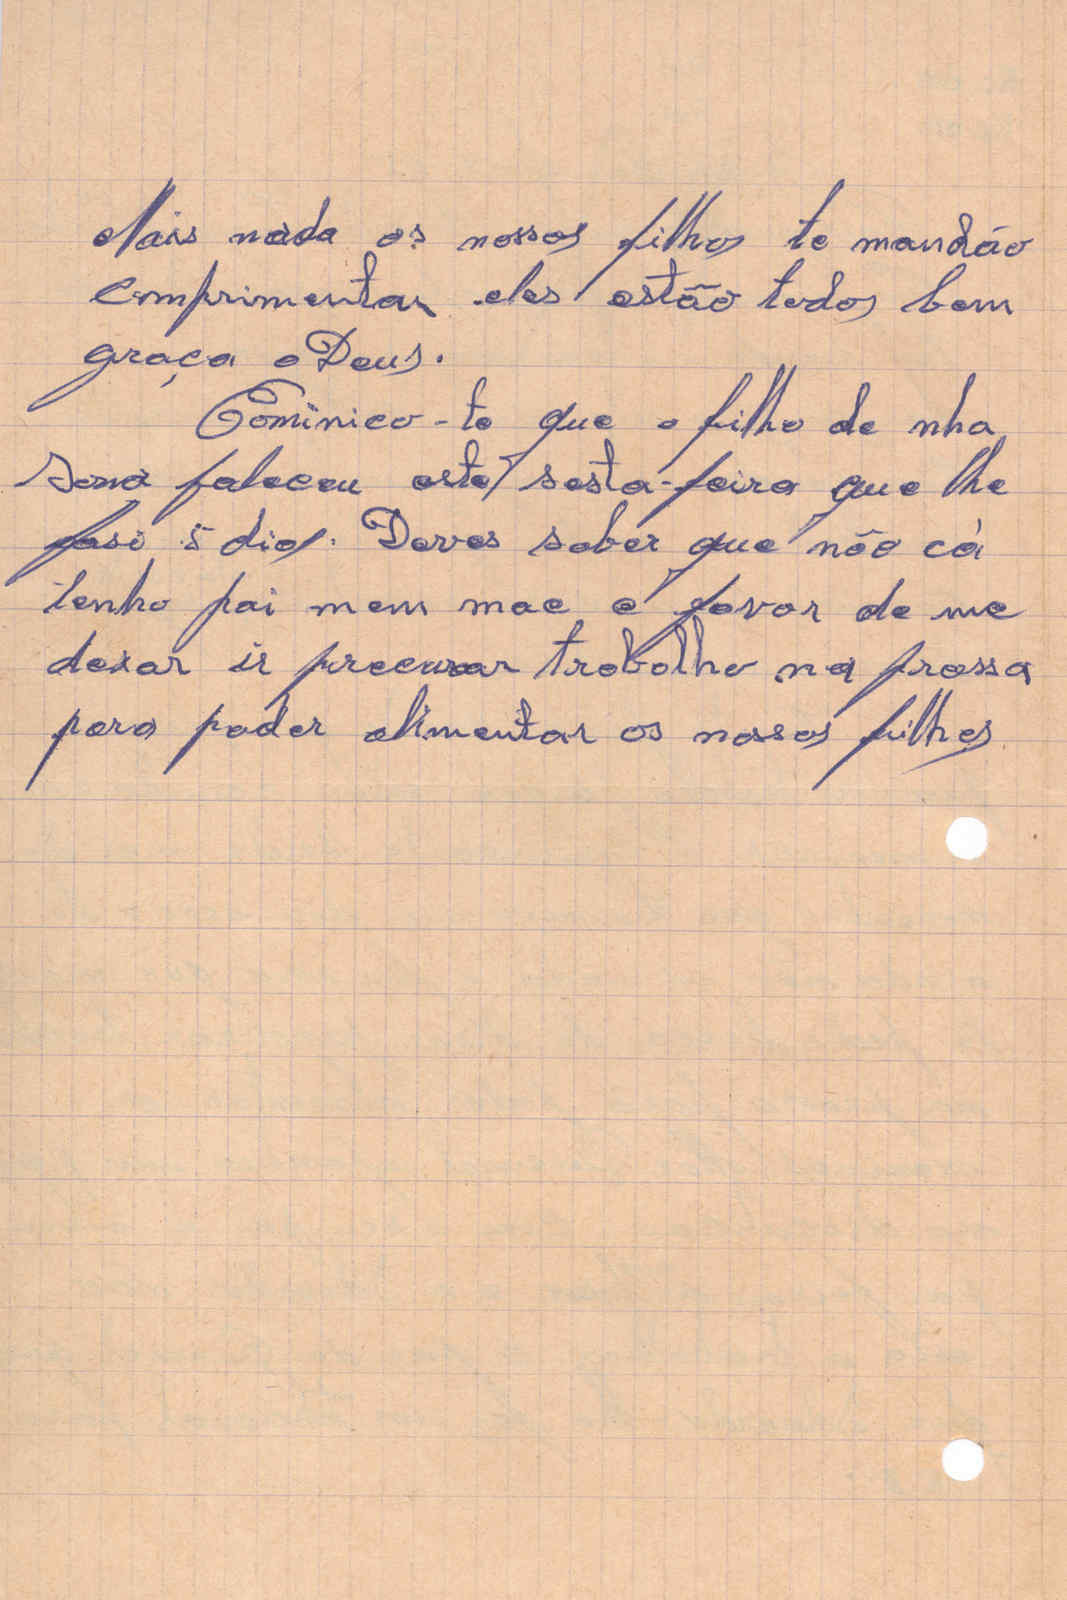 Mais nada os nossos filhos te mandão
comprimentar eles estão todos bem
graça a Deus.
Comïnico-te que o filho de nha
faleceu este sesta-feira que lhe
fasi 5 dias. Deves saber que não cá
tenho pai mem mae é favor de me
dexar ir precurar trabalho na prassa
para poder alimentar os nossos filhos